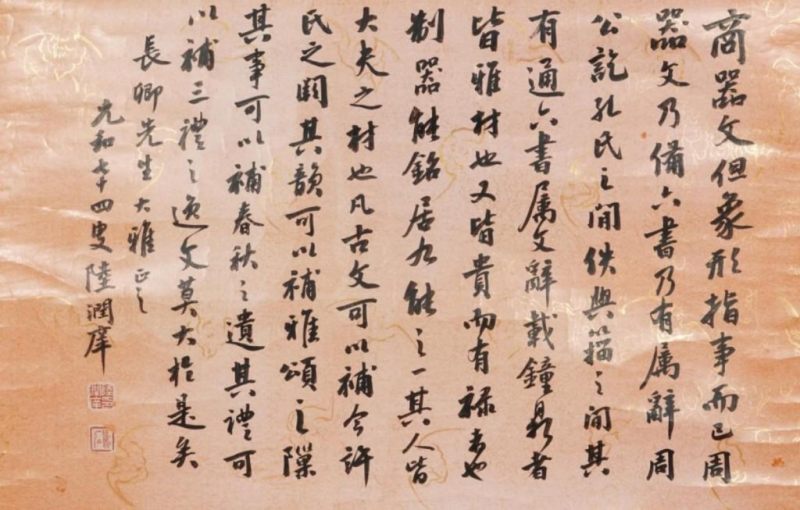 商器文但象形指事而已周
器文乃備六書乃有属辭周
公訖孔氏之間佚與籀之間其
有通六書属文辭載鐘鼎者
皆雅材也又皆貴而有禄者也
制器能銘居九能之一其人皆
大夫之材也凡古文可以補今許
氏之闕其韻可以補雅頌之隟
其事可以補春秋之遺其禮可
以補三禮之逸文莫大於是矣
長卿先生大雅正之
元和七十四叟陸潤庠